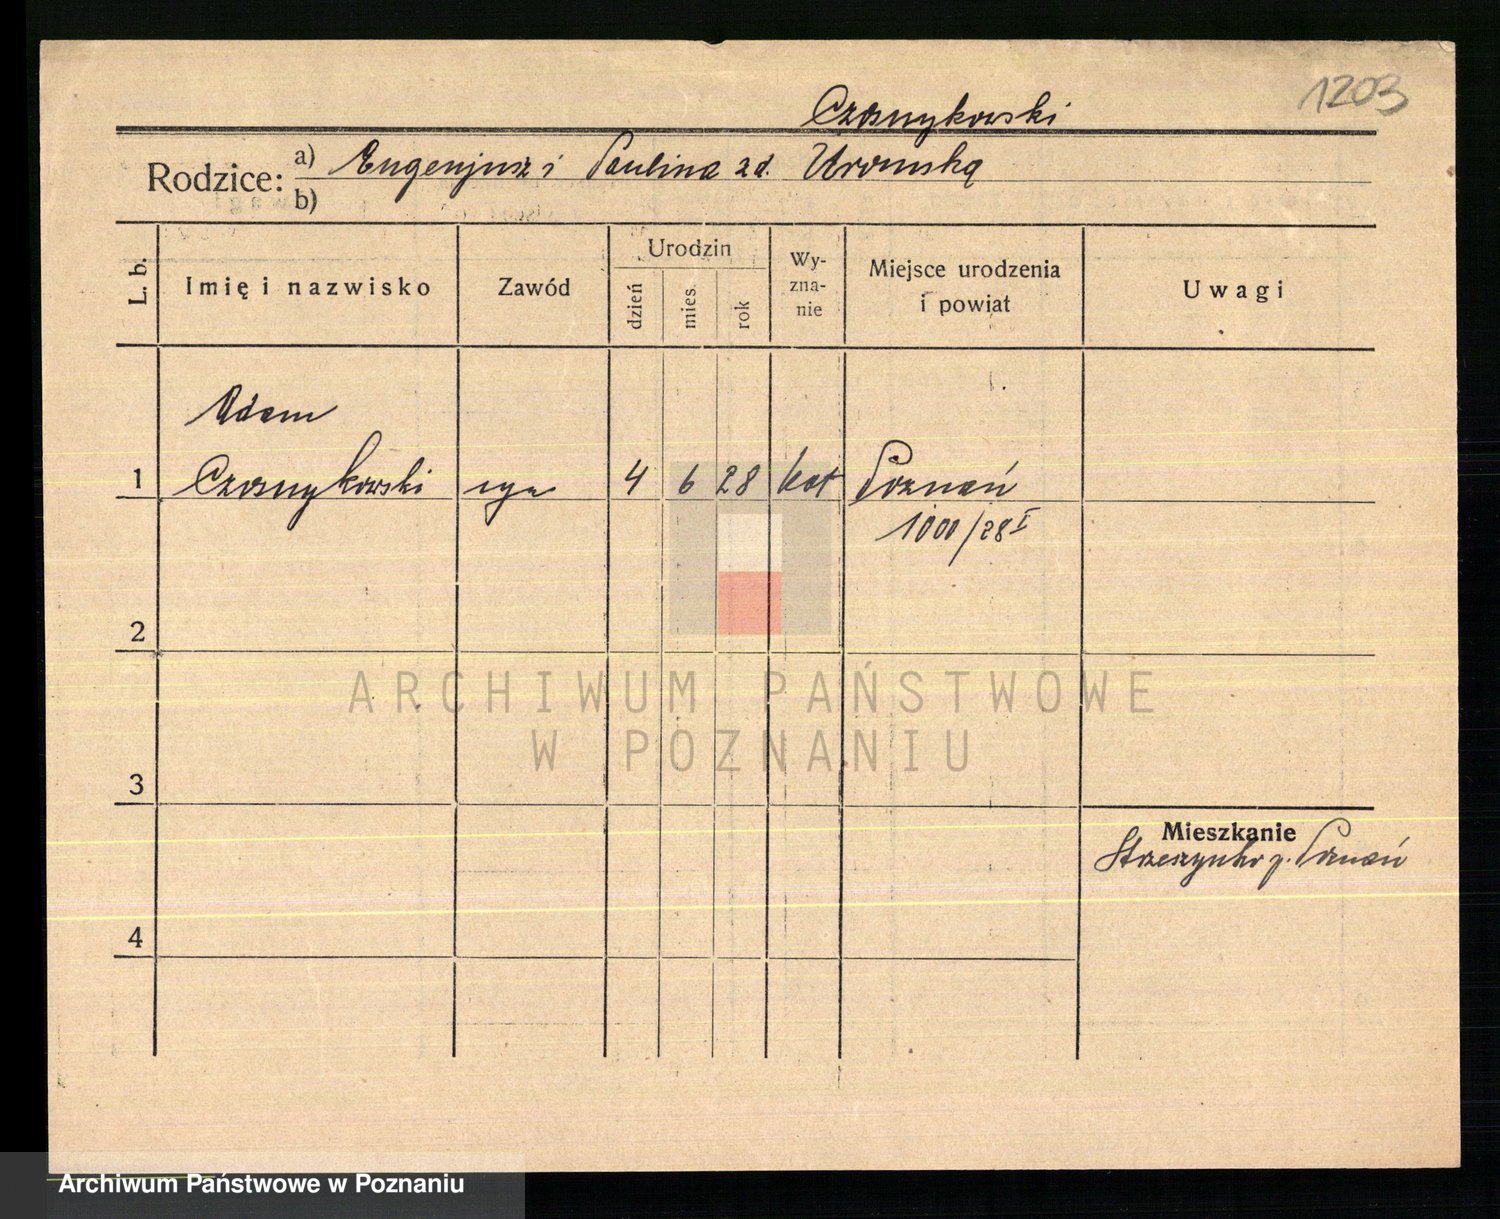 1203
Czosnykowski
Rodzice: a) Eugenjusz i Paulina zd. Uromska
b)
L. b.
Imię i nazwisko
Zawód
Urodzin
dzień
mies.
rok
Wy-
zna-
nie
Miejsce urodzenia
i powiat
Uwagi
Adam
1 Czosnykowski syn 4 6 28 kat Poznań
1000/28 I
2
ARCHIWUM PAŃSTWOWE
W POZNANIU
3
Mieszkanie
Strzeszynko p. Poznań
4
Archiwum Państwowe w Poznaniu